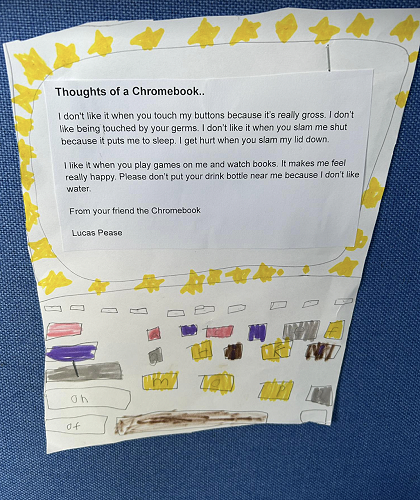 Thoughts of a Chromebook..
I don't like it when you touch my buttons because it's really gross. I don't
like being touched by your germs. I don't like it when you slam me shut
because it puts me to sleep. I get hurt when you slam my lid down.
I like it when you play games on me and watch books. It makes me feel
really happy. Please don't put your drink bottle near me because I don't like
water.
From your friend the Chromebook
Lucas Pease
H K
m
on
of